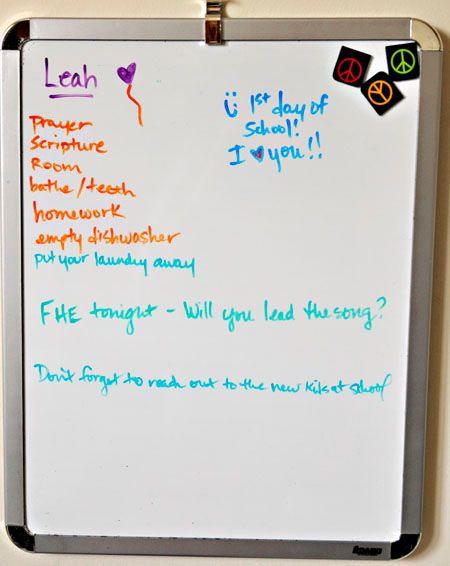 Leah
prayer
scripture
Room
bathe/teeth
homework
empty dishwasher
put your laundry away
1st day of
school!
I ♥ you!!
FHE tonight - Will you lead the song?
Don't forget to reach out to the new kids at school